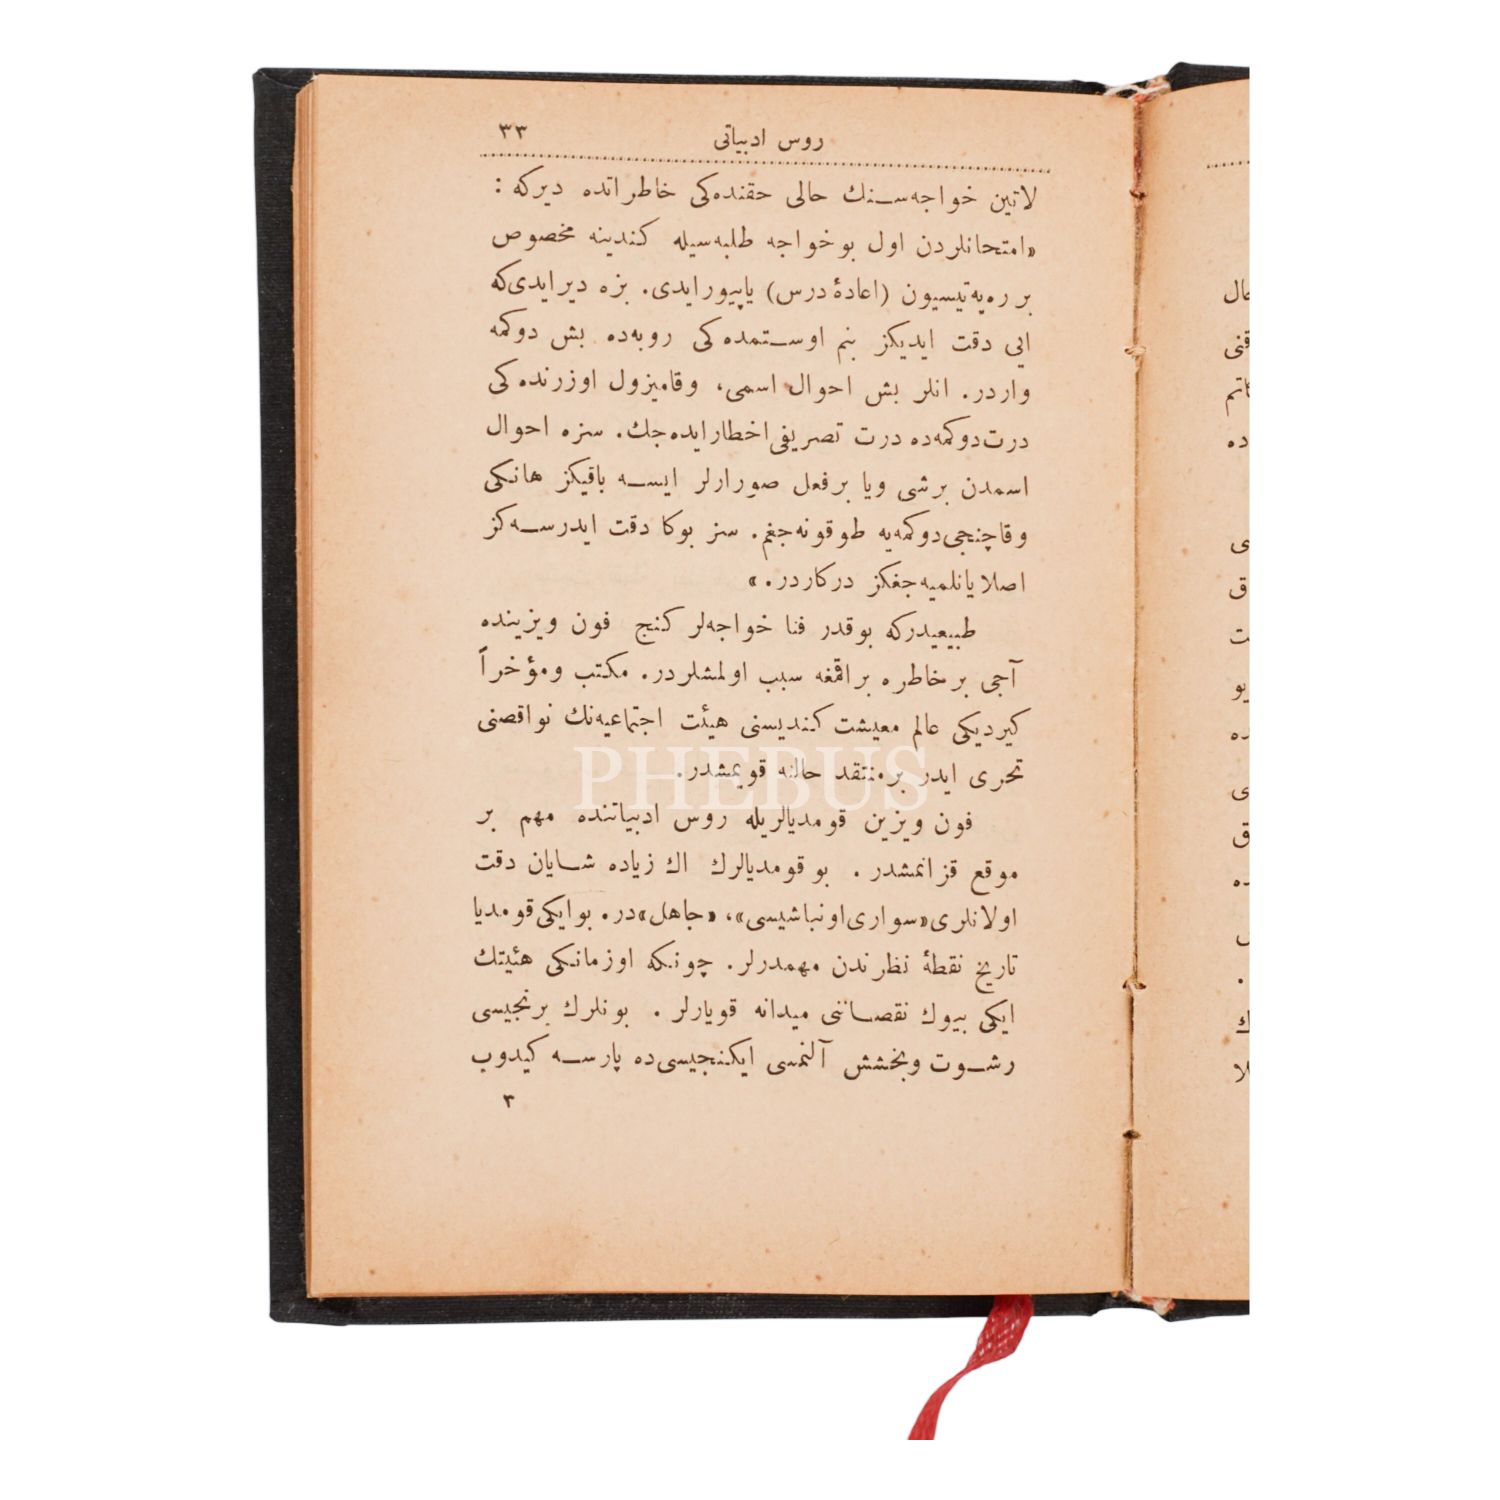 روس ادبیاتی ٣٣
لاتین خواجه‌سـنك حالی حقنده‌كی خاطراتده دیركه :
«امتحانلردن اول بوخواجه طلبه‌سیله كندینه مخصوص
بر ره‌په‌تیسیون (اعادهٔ درس) یاپیورایدی. بزه دیرایدی‌كه
ایی دقت ایدیكز بنم اوسـتمده‌كی روبه‌ده بش دوكمه
واردر. انلر بش احوال اسمی، وقامیزول اوزرنده‌كی
درت‌دوكمه‌ده درت تصریفی اخطار ایده‌جك. سزه احوال
اسمدن برشی ویا برفعل صورارلر ایسـه باقیكز هانكی
وقاچنجی‌دوكمه‌یه طوقونه‌جغم. سز بوكا دقت ایدرسـه‌كز
اصلا یانلمیه‌جغكز دركاردر.»
طبیعیدركه بوقدر فنا خواجه‌لر كنج فون ویزینده
آجی بر خاطره براقمغه سبب اولمشلردر. مكتب ومؤخراً
كیردیكی عالم معیشت كندیسنی هیئت اجتماعیه‌نك نواقصنی
تحری ایدر بر منتقد حالنه قویمشدر.
PHEBUS
فون ویزین قومدیالریله روس ادبیاتنده مهم بر
موقع قزانمشدر. بو قومدیالرك اك زیاده شـایان دقت
اولانلری«سواری‌اونباشیسی»، «جاهل»در. بوایكی قومدیا
تاریخ نقطهٔ نظرندن مهمدرلر. چونكه اوزمانكی هئیتك
ایكی بیوك نقصـاننی میدانه قویارلر. بونلرك برنجیسی
رشـوت وبخشش آلنمسی ایكنجیسی‌ده پارسـه كیدوب
٣